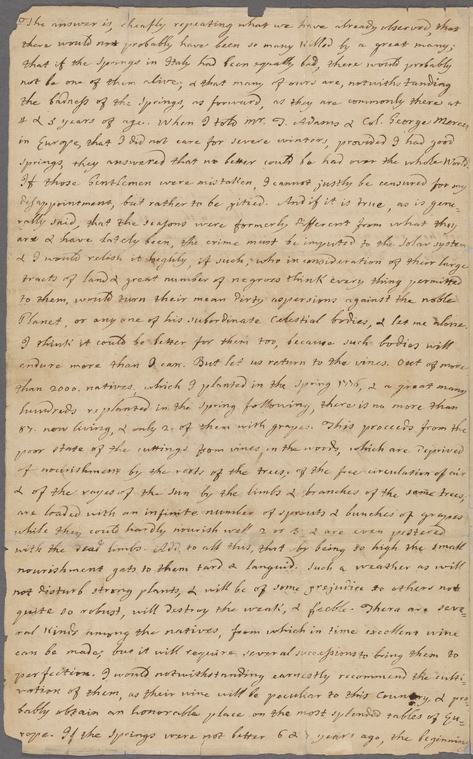 The answer is, cheafly repeating what we have already observed, that
there would not probably have been so many killed by a great many;
that if the springs in Italy had been equally bad, there would probably
not be one of them alive; & that many of ours are, notwithstanding
the badness of the springs, as forward, as they are commonly there at
4 & 5 years of age. When I told Mr. T. Adams & Col. George Mercer,
in Europe, that I did not care for severe winters, provided I had good
springs, they answered that no better could be had over the whole World.
If those Gentlemen were mistaken, I cannot justly be censured for my
disappointment, but rather to be pitied. And if it is true, as is gene-
rally said, that the seasons were formerly different from what they
are & have lately been, the crime must be imputed to the solar system
& I would relish it highly, if such, who in consideration of their large
tracts of land & great number of negroes think every thing permitted
to them, would turn their mean dirty aspersions against the noble
Planet, or any one of his subordinate Celestial bodies, & let me alone.
I think it could be better for them too, because such bodies will
endure more than I can. But let us return to the vines. Out of more
than 2000. natives, which I planted in the spring 1776, & a great many
hundreds replanted in the spring following, there is no more than
87. now living, & only 2. of them with grapes. This proceeds from the
poor state of the cuttings from vines in the woods, which are deprived
of nourishment by the roots of the trees, of the free circulation of air
& of the rayes of the sun by the limbs & branches of the same trees,
are loaded with an infinite number of sprouts & bunches of grapes
while they could hardly nourish well 2 or 3, & are even pestered
with the dead limbs. Add to all this, that by being to high the small
nourishment gets to them tard & languid. Such a weather as will
not disturb strong plants, & will be of some prejudice to others not
quite so robust, will destroy the weak, & feeble. There are seve-
ral kinds among the natives, from which in time excellent wine
can be made, but it will require several successions to bring them to
perfection. I would notwithstanding earnestly recommend the culti-
vation of them, as their vine will be peculiar to this Country, & pro-
bably obtain an honorable place on the most splended tables of Eu-
rope. If the springs were not better 6 & 7 years ago, the beginning